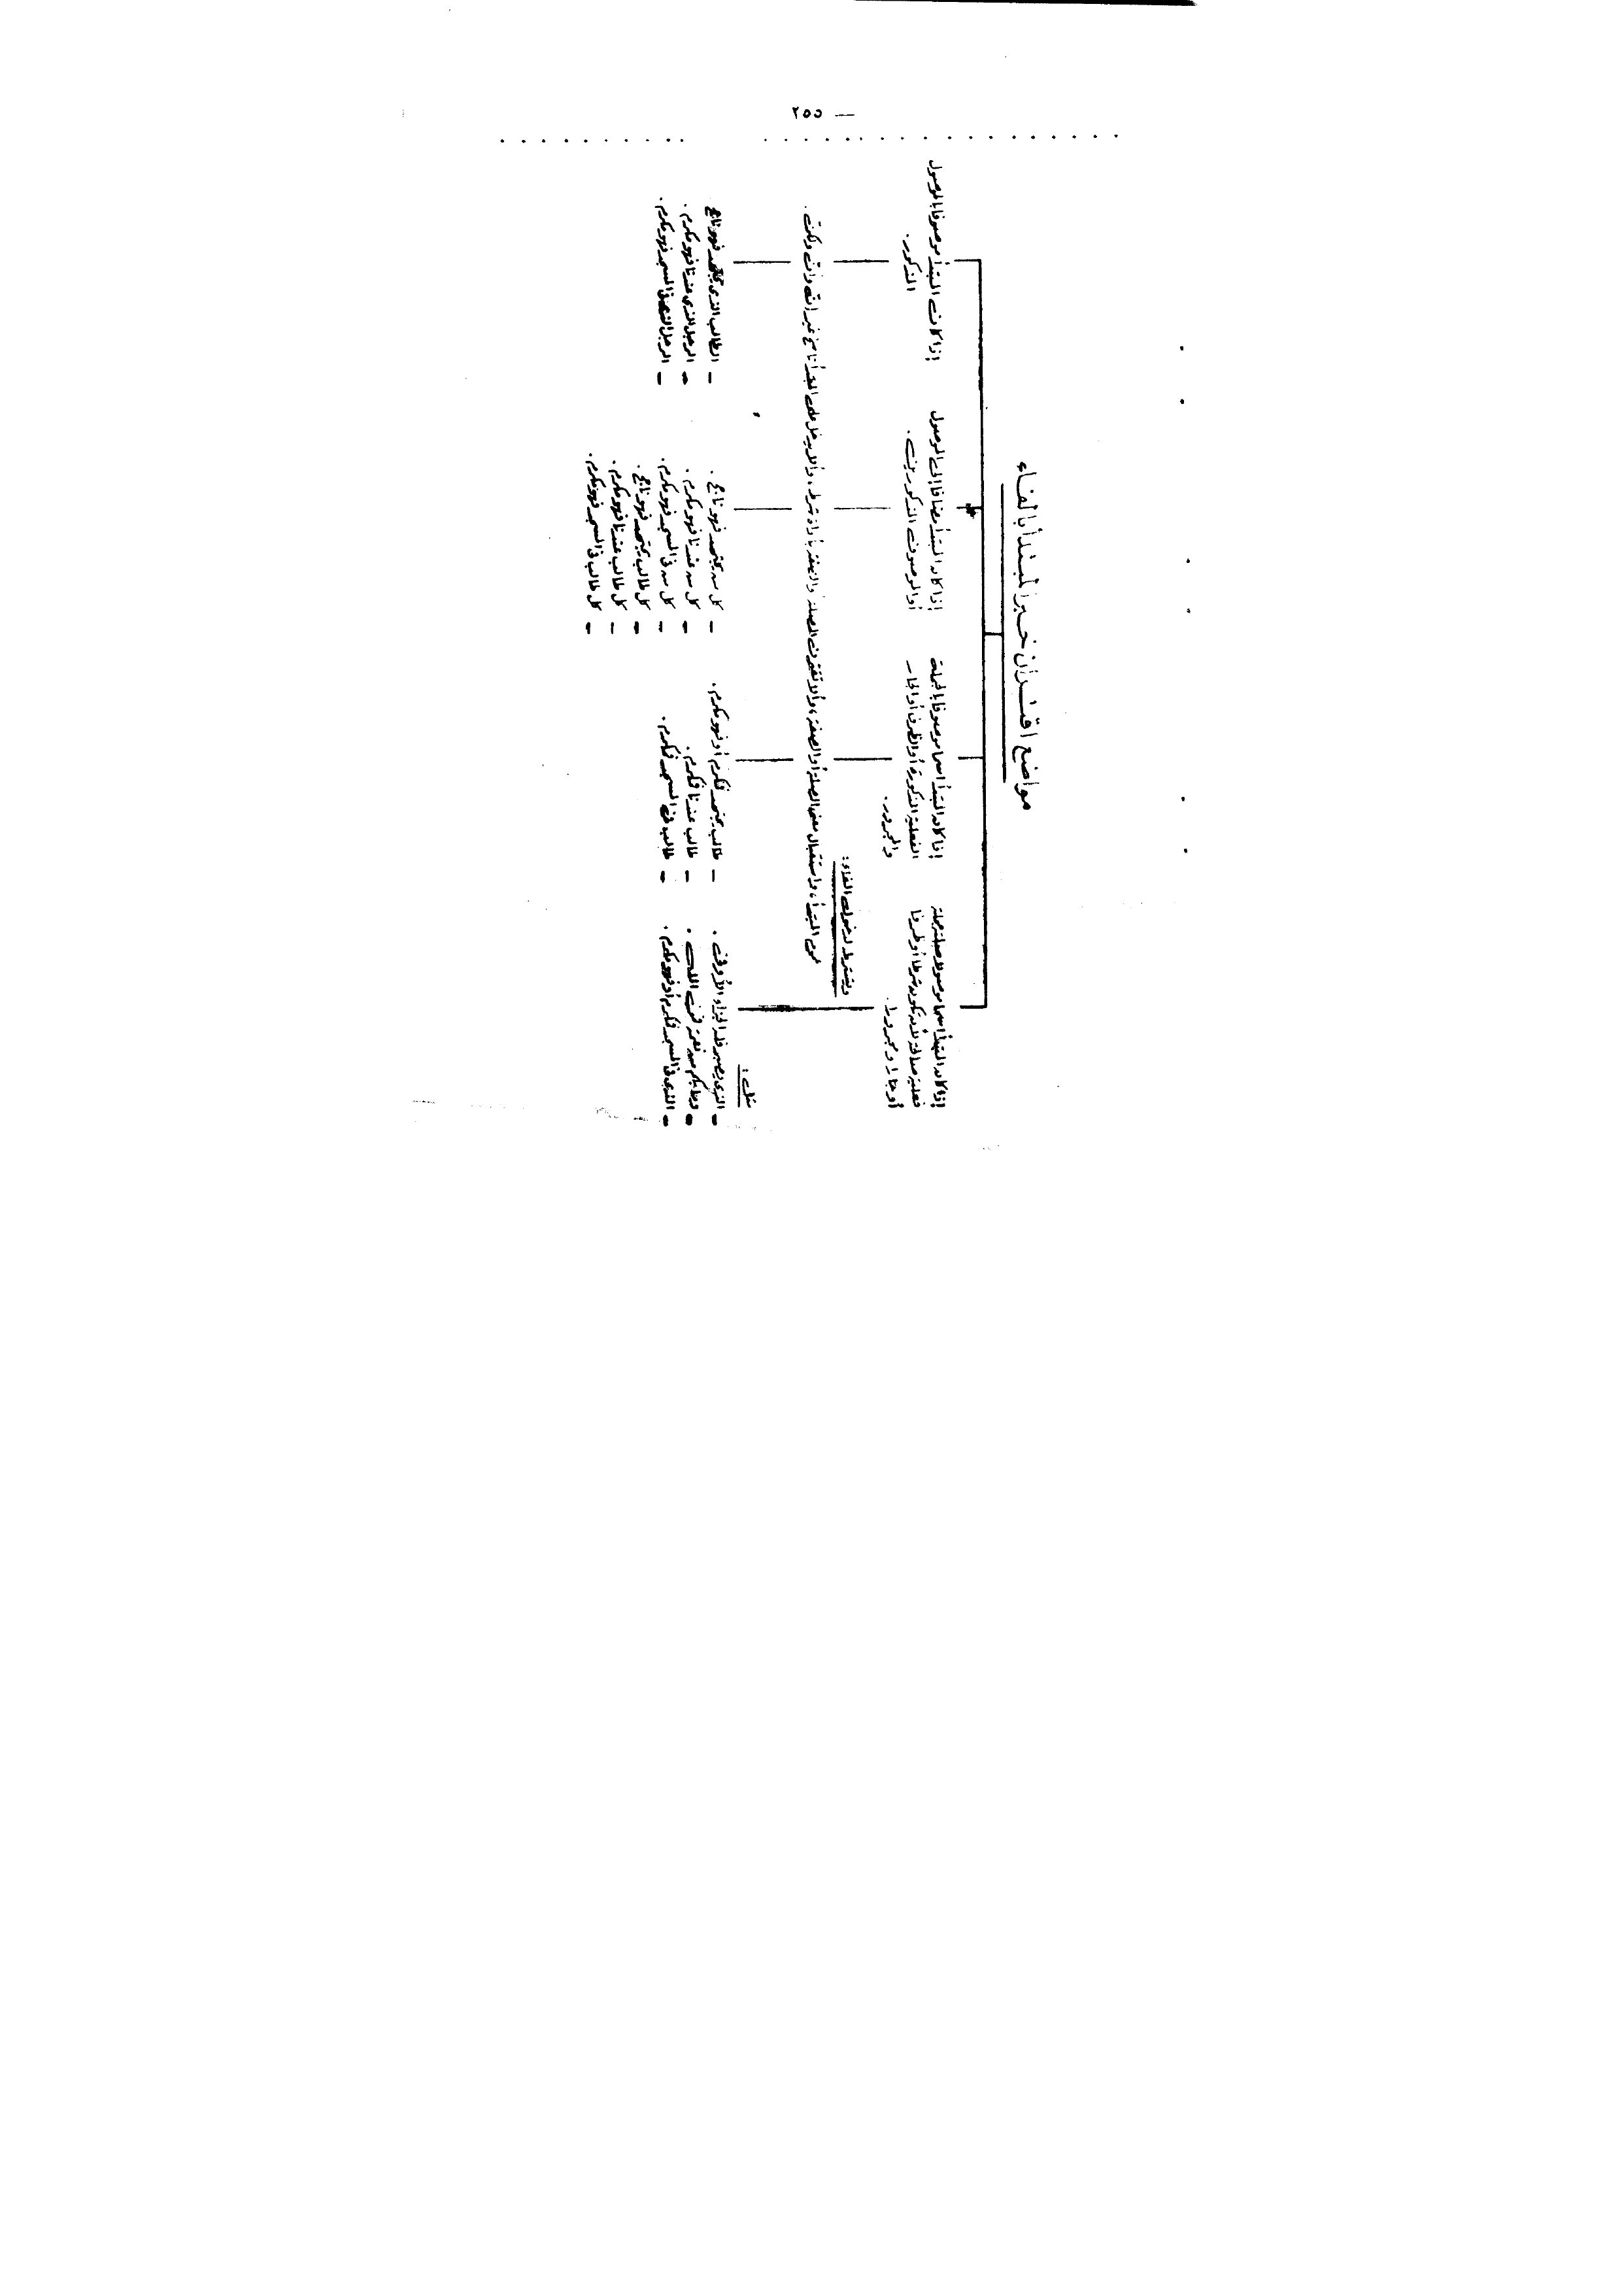 — ٢٥٥
مواضع اقتران خبر المبتدأ بالفاء
إذا كان المبتدأ اسما موصولا صلته جملة
فعلية صالحة لأن تكون شرطا أو ظرفا
أو جارا ومجرورا .
إذا كان المبتدأ اسما موصوفا بالجملة
الفعلية المذكورة أو الظرف أو الجار
والمجرور .
إذا كان المبتدأ مضافا إلى الموصول
أو الموصوف المذكورين .
إذا كان المبتدأ موصوفا بالموصول
المذكور .
ويشترط لدخول الفاء :
عموم المبتدأ ، واستقبال معنى الصلة أو الصفة ، وألا تقترن الصلة والصفة بأداة شرط ، وألا يدخل على المبتدأ ناسخ غير إنّ وأنّ ولكنّ .
مثل :
- الذي يصبر فله الجزاء الأوفى .
- وما بكم من نعمة فمن الله .
- الذي في المسجد فمكرم أو فهو مكرم .
- طالب يجتهد فمكرم أو فهو مكرم .
- طالب عندنا فمكرم .
- طالب في المسجد فمكرم .
- كل من يجتهد فهو ناجح .
- كل من عندنا فهو مكرم .
- كل من في المسجد فهو مكرم .
- كل طالب يجتهد فهو ناجح .
- كل طالب عندنا فهو مكرم .
- كل طالب في المسجد فهو مكرم .
- الطالب الذي يجتهد فهو ناجح
- الرجل الذي عندنا فهو مكرم .
- الرجل الذي في المسجد فهو مكرم .